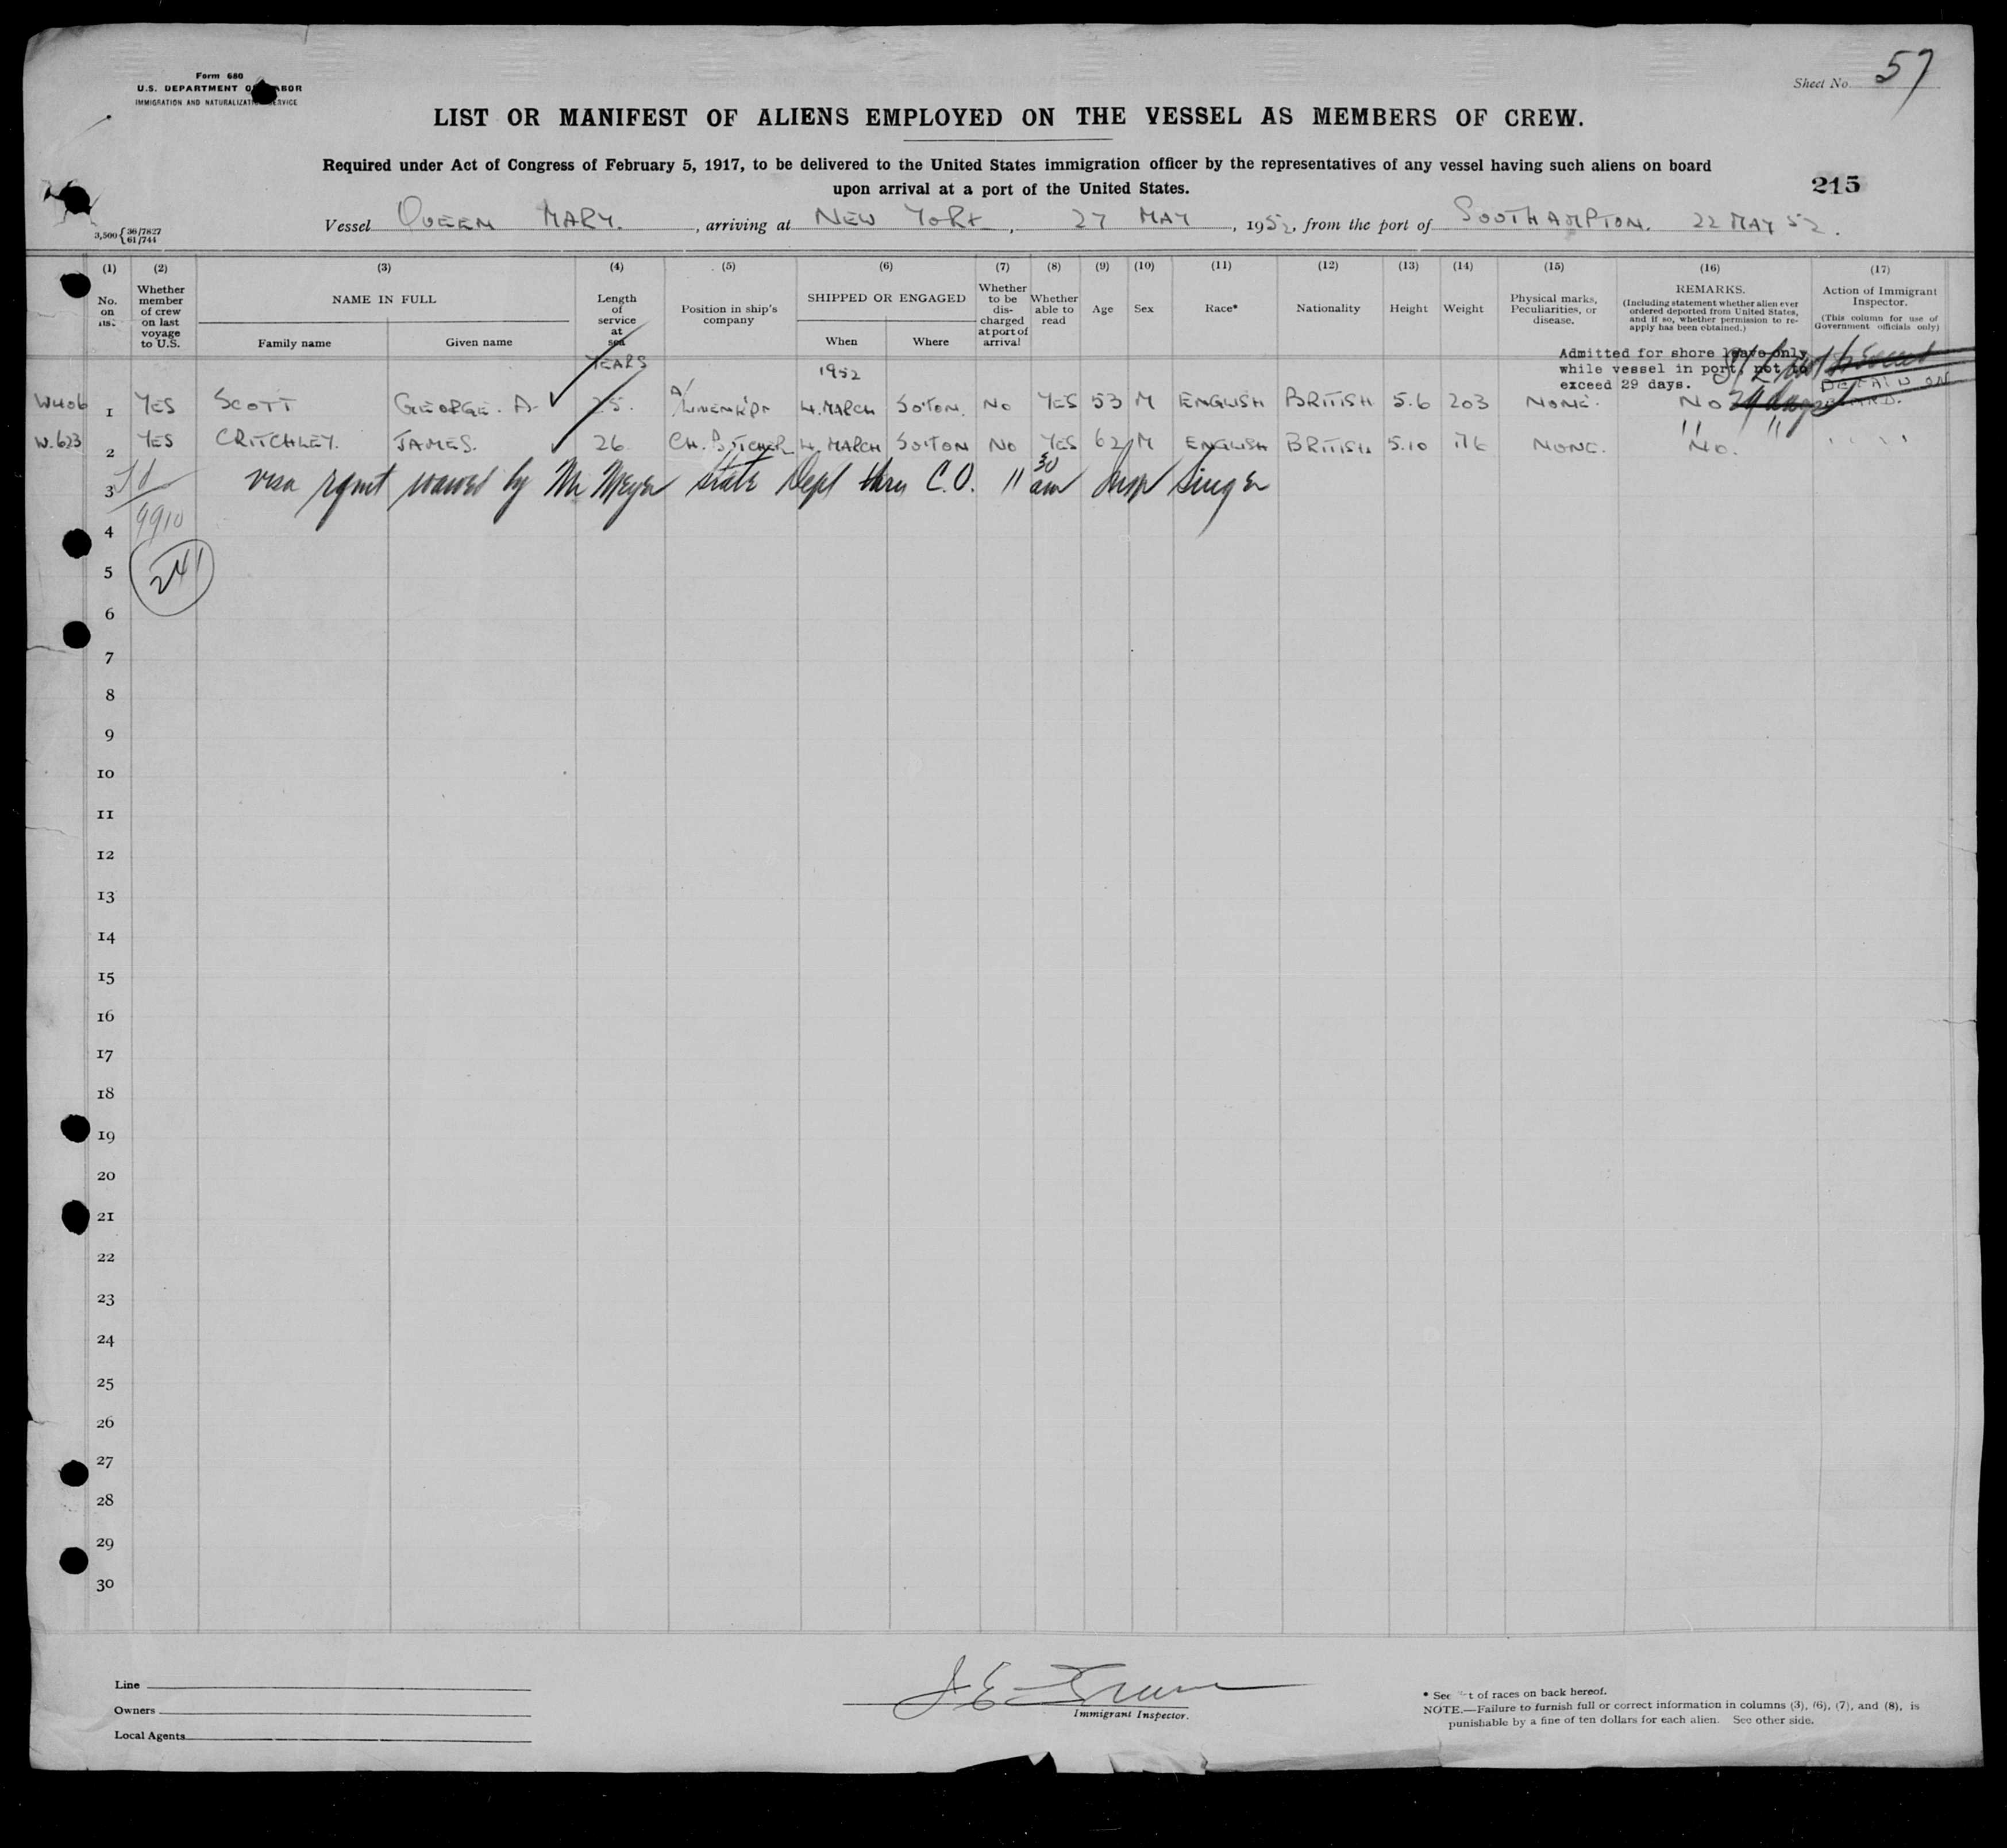 Form 680
U.S. DEPARTMENT OF LABOR
IMMIGRATION AND NATURALIZATION SERVICE
Sheet No. 57
LIST OR MANIFEST OF ALIENS EMPLOYED ON THE VESSEL AS MEMBERS OF CREW.
Required under Act of Congress of February 5, 1917, to be delivered to the United States immigration officer by the representatives of any vessel having such aliens on board
upon arrival at a port of the United States.
215
3,500 { 36/7827 61/744
Vessel QUEEN MARY. , arriving at NEW YORK , 27 MAY , 1952, from the port of SOUTHAMPTON. 22 MAY 52.
(1) (2) (3) (4) (5) (6) (7) (8) (9) (10) (11) (12) (13) (14) (15) (16) (17)
No. on list
Whether member of crew on last voyage to U.S.
NAME IN FULL
Family name
Given name
Length of service at sea
Position in ship's company
SHIPPED OR ENGAGED
When
Where
Whether to be discharged at port of arrival
Whether able to read
Age
Sex
Race*
Nationality
Height
Weight
Physical marks, Peculiarities, or disease.
REMARKS.
(Including statement whether alien ever ordered deported from United States, and if so, whether permission to re-apply has been obtained.)
Action of Immigrant Inspector.
(This column for use of Government officials only)
YEARS
1952
Admitted for shore leave only
while vessel in port, not to
exceed 29 days.
DETAIN ON
W406 1 YES SCOTT GEORGE. A. 25. 4. MARCH SO'TON. NO YES 53 M ENGLISH BRITISH 5.6 203 NONE. NO
W.623 2 YES CRITCHLEY. JAMES. 26 CH. BUTCHER 4. MARCH SO'TON NO YES 62 M ENGLISH BRITISH 5.10 176 NONE. NO. " " " "
3 visa rqmt waived by Mr Meyer State Dept thru C.O. 11 30 am Insp Singer
4 9910
5 241
6
7
8
9
10
11
12
13
14
15
16
17
18
19
20
21
22
23
24
25
26
27
28
29
30
Line
Owners
Local Agents
Immigrant Inspector.
* See list of races on back hereof.
NOTE.—Failure to furnish full or correct information in columns (3), (6), (7), and (8), is
punishable by a fine of ten dollars for each alien. See other side.